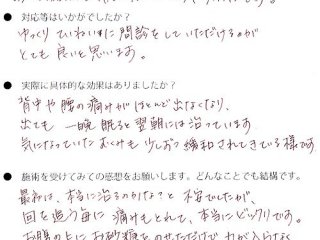 ● 対応等はいかがでしたか？
ゆっくり ていねいに 問診を していただけるのが
とても 良いと 思います。
● 実際に具体的な効果はありましたか？
背中や 腰の 痛みが ほとんど 出なくなり、
出ても 一晩 眠ると 翌朝には 治っています
気になっていた むくみも 少しずつ 緩和されてきている 様です
● 施術を受けてみての感想をお願いします。どんなことでも結構です。
最初は、本当に治るのかな？と 不安でしたが、
回を追う毎に 痛みもとれて、本当に ビックリです。
お腹の上に お砂糖を のせただけで 力が入らなく